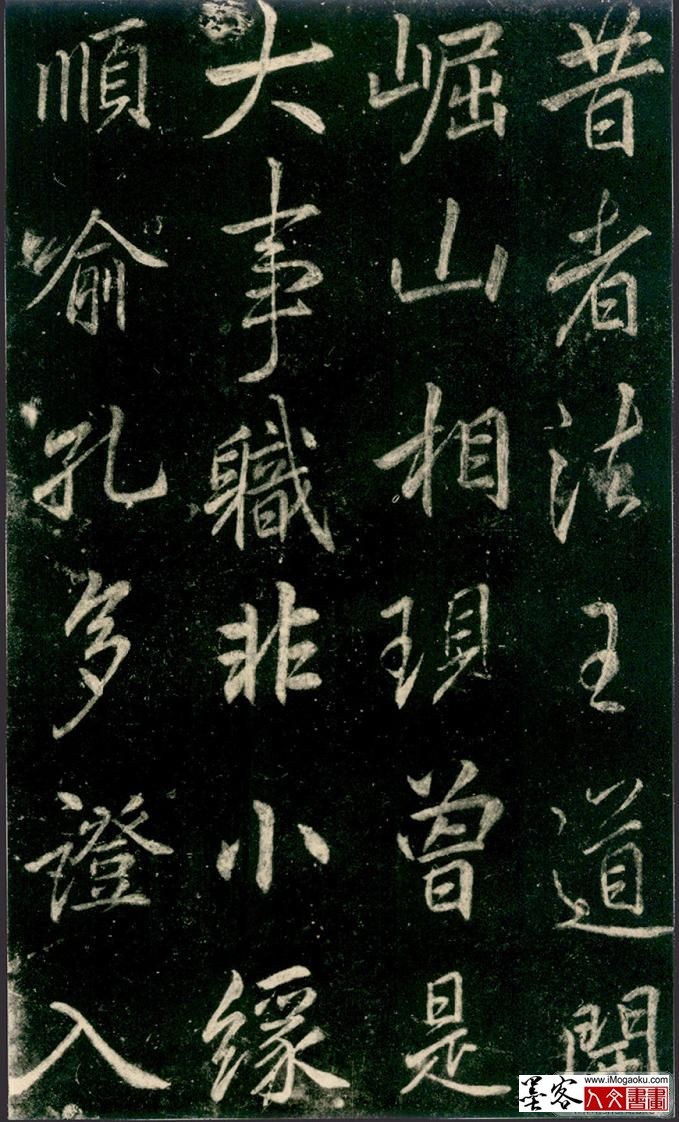 昔者法王道開
崛山相現曽是
大事職非小緣
順喻孔多證入
墨客
www.iMogaoku.com
人文書畫